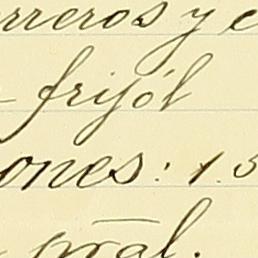 rreros y e
frijól
ones: 1.5
pral.